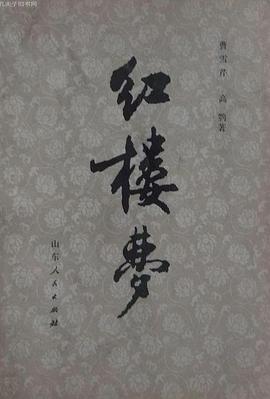 孔夫子旧书网
曹雪芹 高鹗著
红楼梦
山东人民出版社